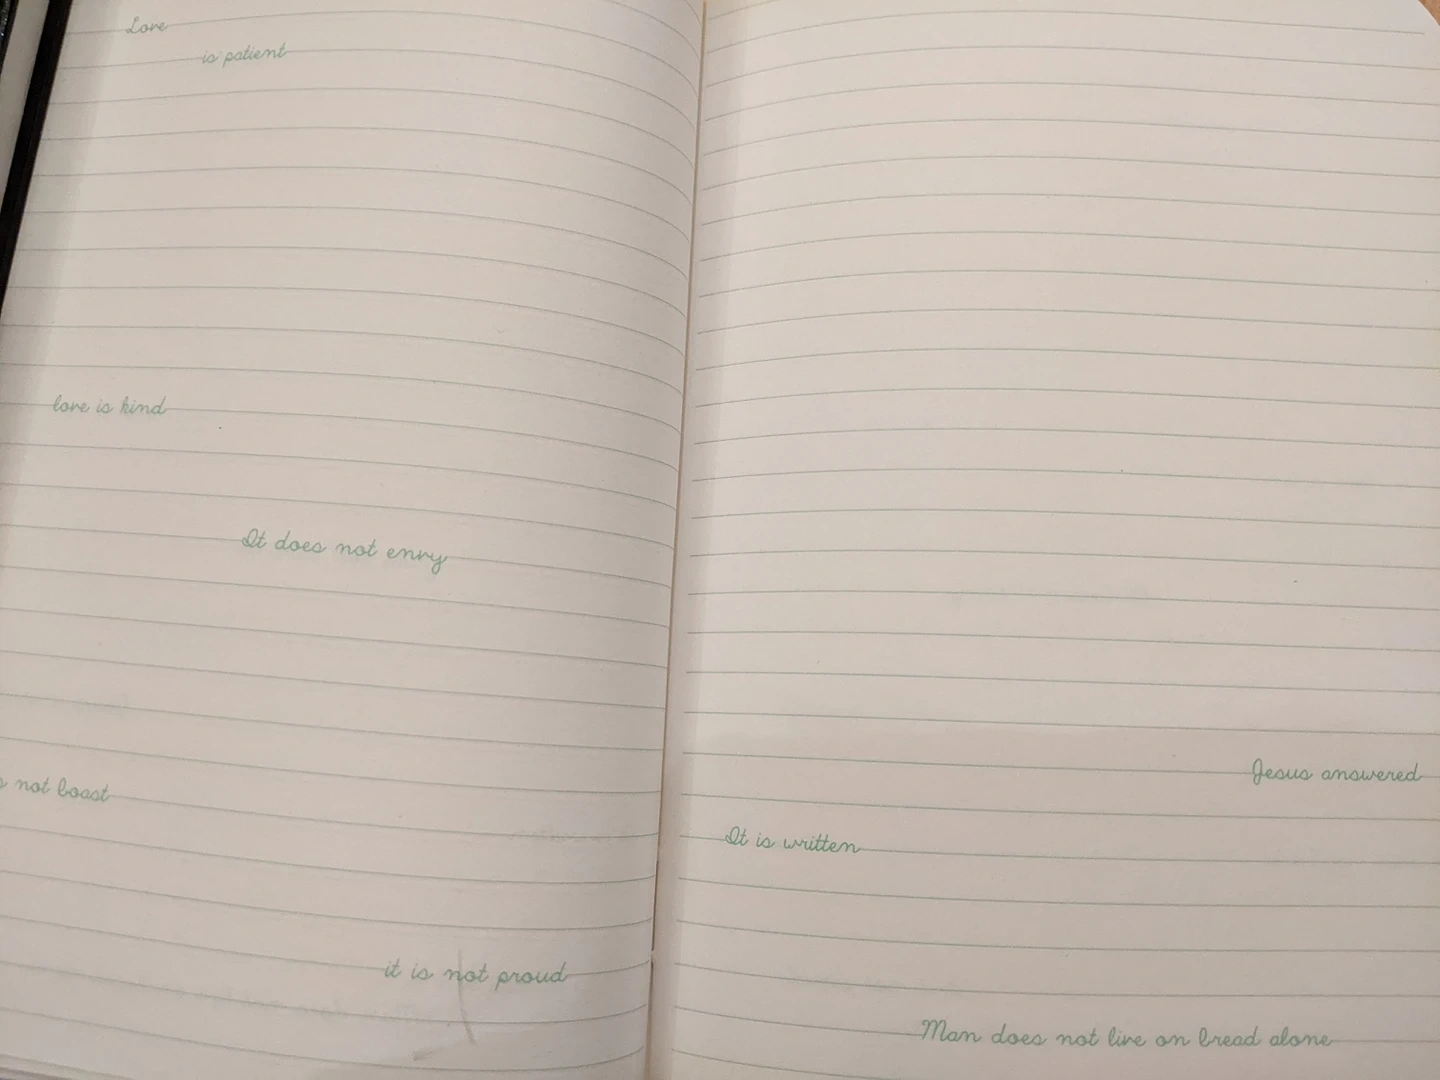 Love
is patient
love is kind
It does not envy
not boast
it is not proud
Jesus answered
It is written
Man does not live on bread alone